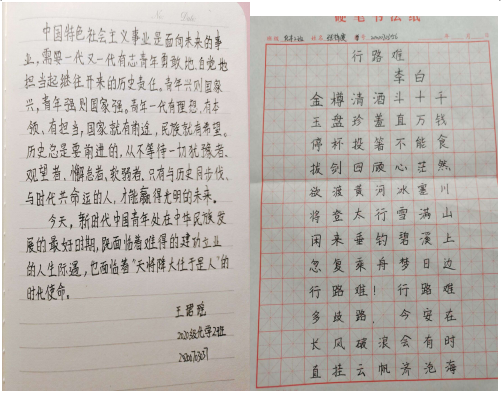 No.
Date
中国特色社会主义事业是面向未来的事
业,需要一代又一代有志青年勇敢地、自觉地
担当起继往开来的历史责任。青年兴则国家
兴,青年强则国家强。青年一代有理想、有本
领、有担当,国家就有前途,民族就有希望。
历史总是要前进的,从不等待一切犹豫者、
观望者、懈怠者、软弱者。只有与历史同步伐、
与时代共命运的人,才能赢得光明的未来。
今天,新时代中国青年处在中华民族发
展的最好时期,既面临着难得的建功立业
的人生际遇,也面临着“天将降大任于是人”的
时代使命。
2020级光学2班
硬笔书法纸
行路难
李白
金樽清酒斗十千
玉盘珍羞直万钱
停杯投箸不能食
拔剑四顾心茫然
欲渡黄河冰塞川
将登太行雪满山
闲来垂钓碧溪上
忽复乘舟梦日边
行路难!行路难
多歧路,今安在
长风破浪会有时
直挂云帆济沧海